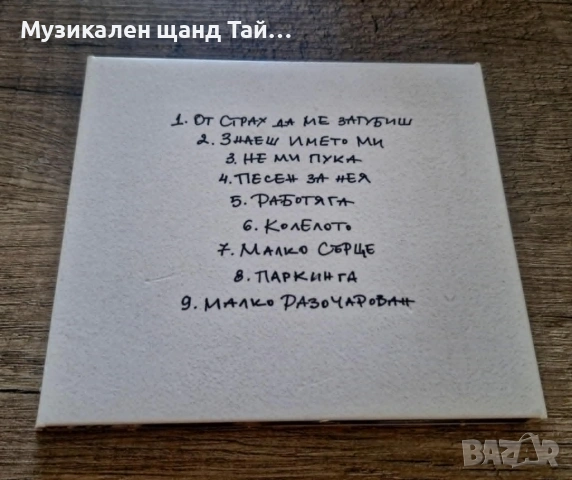 Музикален щанд Тай...
1. ОТ СТРАХ ДА МЕ ЗАГУБИШ
2. ЗНАЕШ ИМЕТО МИ
3. НЕ МИ ПУКА
4. ПЕСЕН ЗА НЕЯ
5. РАБОТЯГА
6. КОЛЕЛОТО
7. МАЛКО СЪРЦЕ
8. ПАРКИНГА
9. МАЛКО РАЗОЧАРОВАН
BAZAR